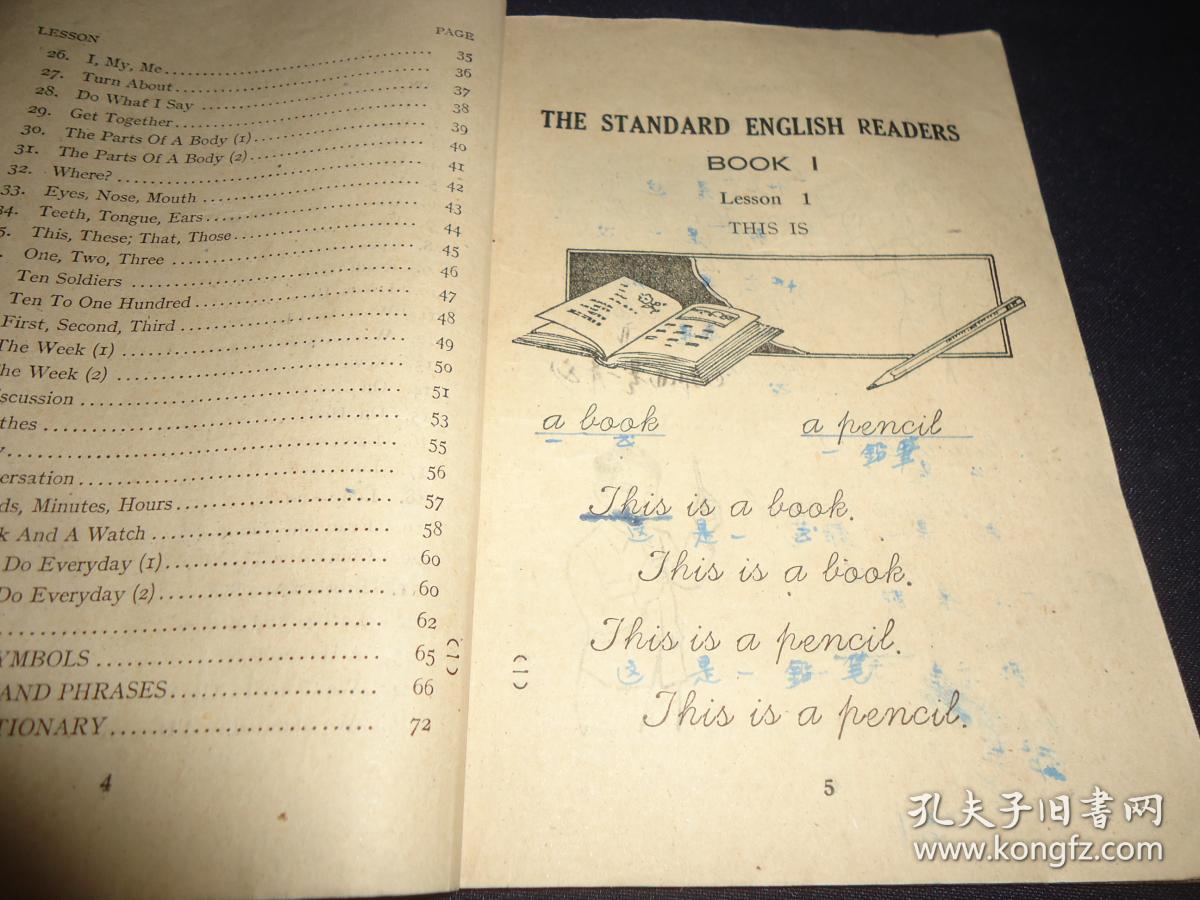 LESSON PAGE
26. I, My, Me 35
27. Turn About 36
28. Do What I Say 37
29. Get Together 38
30. The Parts Of A Body (1) 39
31. The Parts Of A Body (2) 40
32. Where? 41
33. Eyes, Nose, Mouth 42
34. Teeth, Tongue, Ears 43
5. This, These; That, Those 44
One, Two, Three 45
Ten Soldiers 46
Ten To One Hundred 47
First, Second, Third 48
The Week (1) 49
he Week (2) 50
scussion 51
thes 53
55
ersation 56
ds, Minutes, Hours 57
k And A Watch 58
Do Everyday (1) 60
Do Everyday (2) 60
62
YMBOLS 65
AND PHRASES 66
TIONARY 72
(一)
4
THE STANDARD ENGLISH READERS
BOOK I
Lesson 1
THIS IS
a book a pencil
一 鉛筆
This is a book.
这 是 一
This is a book.
This is a pencil.
(一)
这 是 一 鉛 笔
This is a pencil.
5
孔夫子旧书网
www.kongfz.com